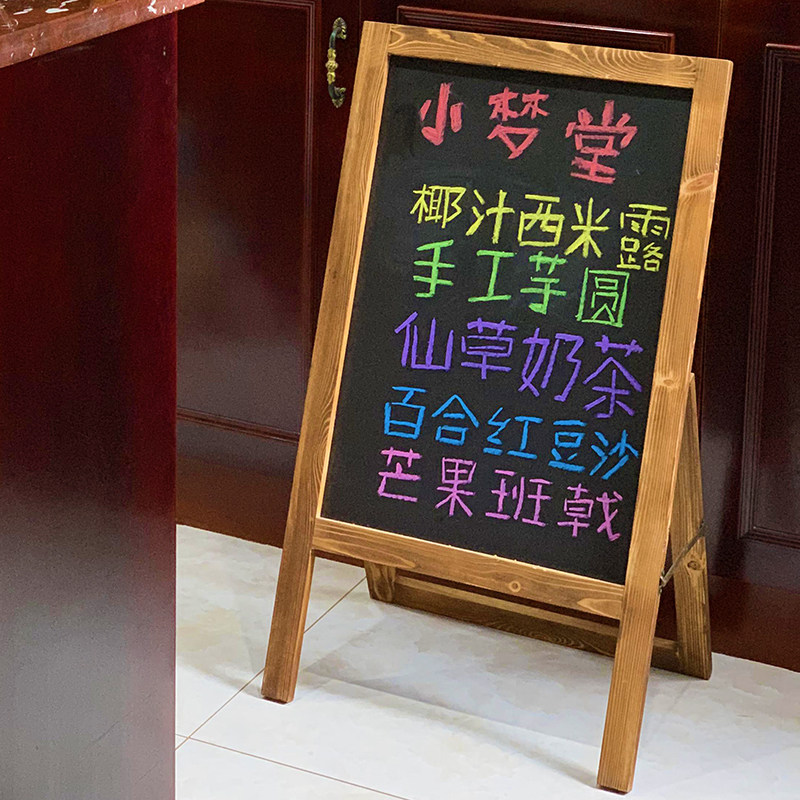 小梦堂
椰汁西米露
手工芋圆
仙草奶茶
百合红豆沙
芒果班戟